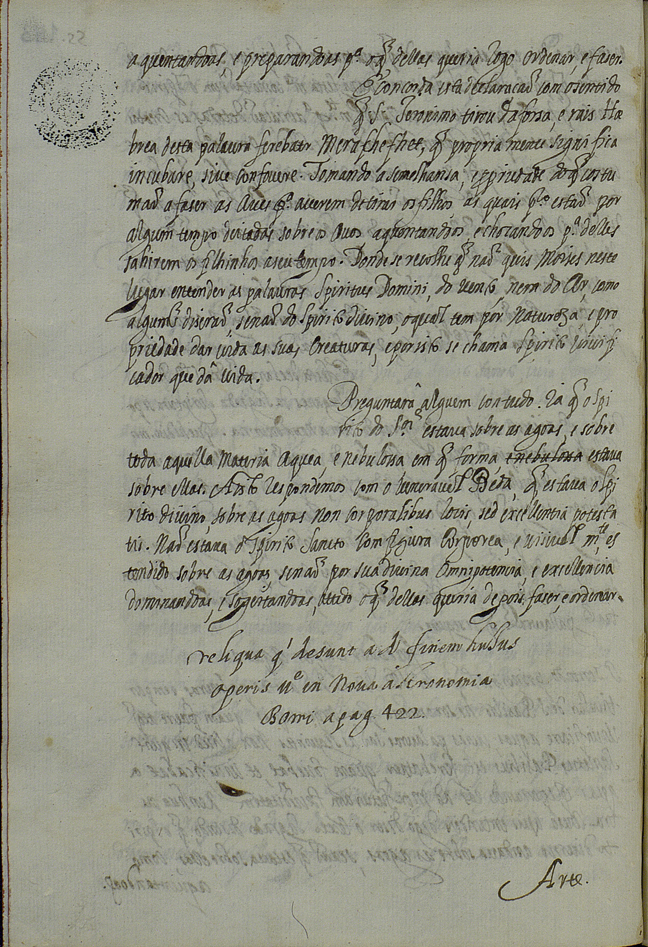 aquentandoas, e preparandoas pª. o q̃ dellas queria logo ordenar, e faser.
E concorda esta declaracaõ com o sentido
q̃ S. Jeronimo tirou da forsa, e rais He
brea desta palavra ferebatr Merafhefhet, q̃ propriamente significa
incubare, sive confovere. Tomando a semelhansa, e propriedade do q̃ custu
maõ a faser as Aves qdo. averem de tirar os filhos as quais pª. estaõ por
algum tempo deitadas sobre os Ovos aquentandoos e chocandoos pª. delles
sahirem os filhinhos a seu tempo. Donde se recolhe q̃ naõ quis Moises neste
lugar entender as palavras Spiritus Domini, do vento nem do Ar, como
alguns diseraõ, senaõ do Spirito divino, o qual tem por Naturesa e pro
priedade dar vida as suas Creaturas, e por isto se chama Spirito vivifi
cador que dâ vida.
Preguntarâ alguem contudo. Ia q̃ o Spi
rito do Sor. estava sobre as agoas, e sobre
toda aquella Materia Aquea, e nebulosa em q̃ forma e nebulosa estava
sobre ellas. A isto respondemos com o veneravel Beda, q̃ estava o Spi
rito divino, sobre as agoas non corporalibus locis, sed excellentia potesta
tis. Naõ estava o Spirito Sancto com figura Corporea, e visivel mte. es
tendido sobre as agoas, senaõ por sua divina Omnipotencia, e excellencia
dominandoas, e sogeitandoas, a tudo o q̃ dellas queria depois faser, e ordenar.
reliqua q' desunt ad finem hujus
operis vᵉ en Nova astronomia
Borri a pag 422.
Arte.